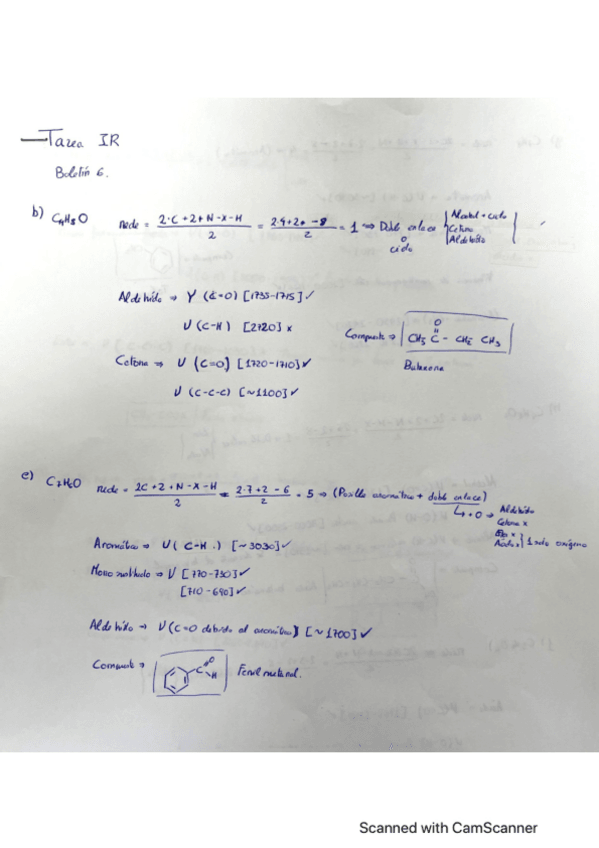 Tarea IR
Boletín 6.
b) C4H8O nede = 2·C+2+N-X-H / 2 = 2·4+2+ -8 / 2 = 1 ⇒ Doble enlace o ciclo
Alcohol + ciclo
Cetona
Aldehído
Aldehído ⇒ ν (C=O) [1735-1715] ✓
ν (C-H) [2720] x
Cetona ⇒ ν (C=O) [1720-1710] ✓
ν (C-C-C) [~1100] ✓
Compuesto ⇒ CH3 C - CH2 CH3
O
Butanona
e) C7H6O nede = 2C+2+N-X-H / 2 = 2·7+2-6 / 2 = 5 ⇒ (Posible aromático + doble enlace)
+ O ⇒ Aldehído
Cetona x
x
Ácido x
1 solo oxígeno
Aromático ⇒ ν (C-H) [~3030] ✓
Mono sustituido ⇒ ν [770-730] ✓
[710-690] ✓
Aldehído ⇒ ν (C=O debido al aromático) [~1700] ✓
Compuesto ⇒ C O H Fenil metanal.
Scanned with CamScanner